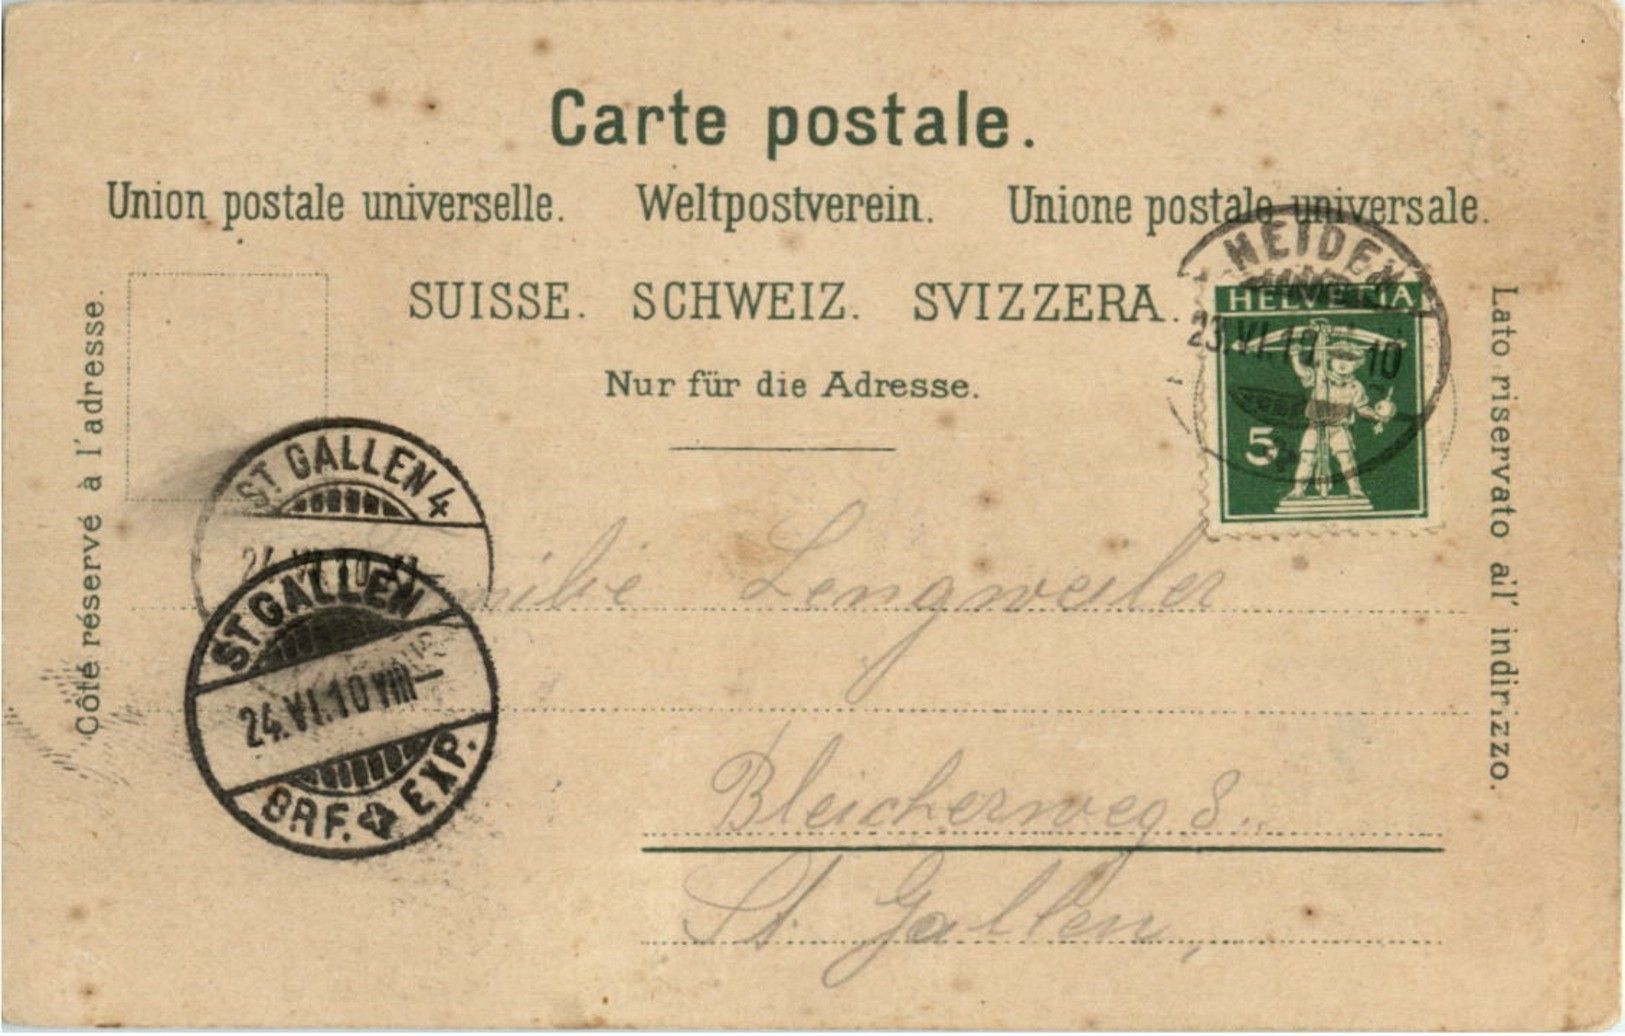 Carte postale.
Union postale universelle. Weltpostverein. Unione postale universale.
SUISSE. SCHWEIZ. SVIZZERA.
Nur für die Adresse.
Côté réservé à l'adresse.
Lato riservato all' indirizzo.
HEIDEN
23.VI.10 - 10
HELVETIA
5
ST. GALLEN 4
24.VI.10
ST. GALLEN
24.VI.10 VIII-
BRF. EXP.
Lengweiler
Bleicherweg 8.
St. Gallen,